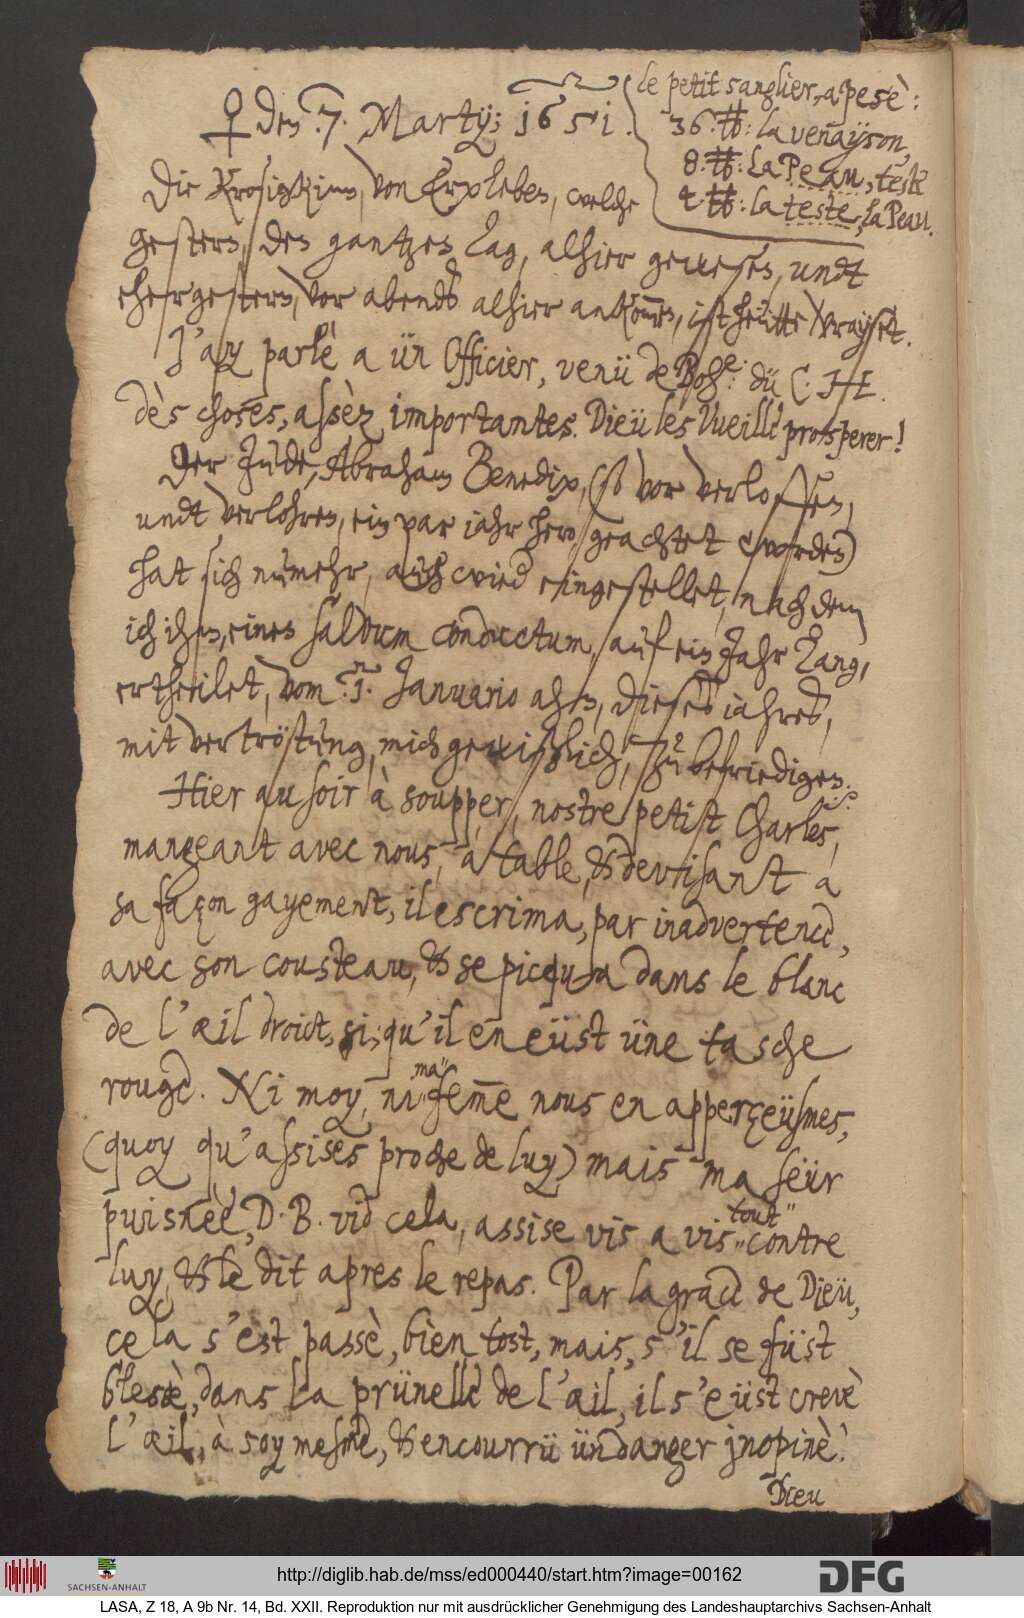 ♀ den: 7. Martzij; 1651.
le petit sanglier, a pesè:
36. ℔: la venayson,
8. ℔: La Peau, teste
4 ℔: la teste, la Peau.
Die Krosigkinn, von Erxleben, welche
gestern, den gantzen Tag, alhier gewesen, undt
ehergestern, vor abends alhier ankom̅en, ist heütte vrayset.
J'ay parlè a ün Officier, venü de Bohe: dü C. H E.
dès choses, assèz importantes. Dieü les vueille prosperer!
Der Jude, Abraham Benedix, (so vor verloffen,
undt verlohren, ein par jahr hero, geachtet worden)
hat sich nümehr, auch wied eingestellet, nach dem
ich ihm, einen salvum conductum, auf ein Jahr lang,
ertheilet, vom .1. Januario ahn, dieses jahres,
mit vertröstüng, mich gewißlich, zu befriedigen.
Hier au soir à soupper, nostre petist Charles,
mangeant avec nous, a table, & devisant a
sa façon gayement, il escrima, par inadvertence,
avec son cousteau, & se picqua dans le blanc
de l'œil droict, si; qu'il en eüst üne tasche
rouge. Ni moy, ni ma fem̅e nous en apperçeüsmes,
(quoy qu'assises proche de luy) mais ma seür
puisnèe, D. B. vid cela, assise vis a vis tout contre
luy, & le dit apres le repas. Par la grace de Dieü,
cela s'est passè, bien tost, mais, s'il se füst
blessè, dans la prünelle de l'œil, il s'eüst crevè
l'œil, à soy mesme, & encourrü ün danger jnopinè!
Dieu
SACHSEN-ANHALT
http://diglib.hab.de/mss/ed000440/start.htm?image=00162
DFG
LASA, Z 18, A 9b Nr. 14, Bd. XXII. Reproduktion nur mit ausdrücklicher Genehmigung des Landeshauptarchivs Sachsen-Anhalt